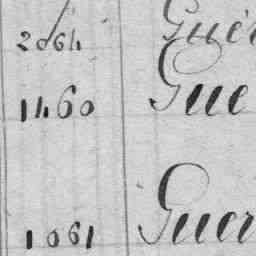 2064 Guér
1460 Gue
1061 Guer